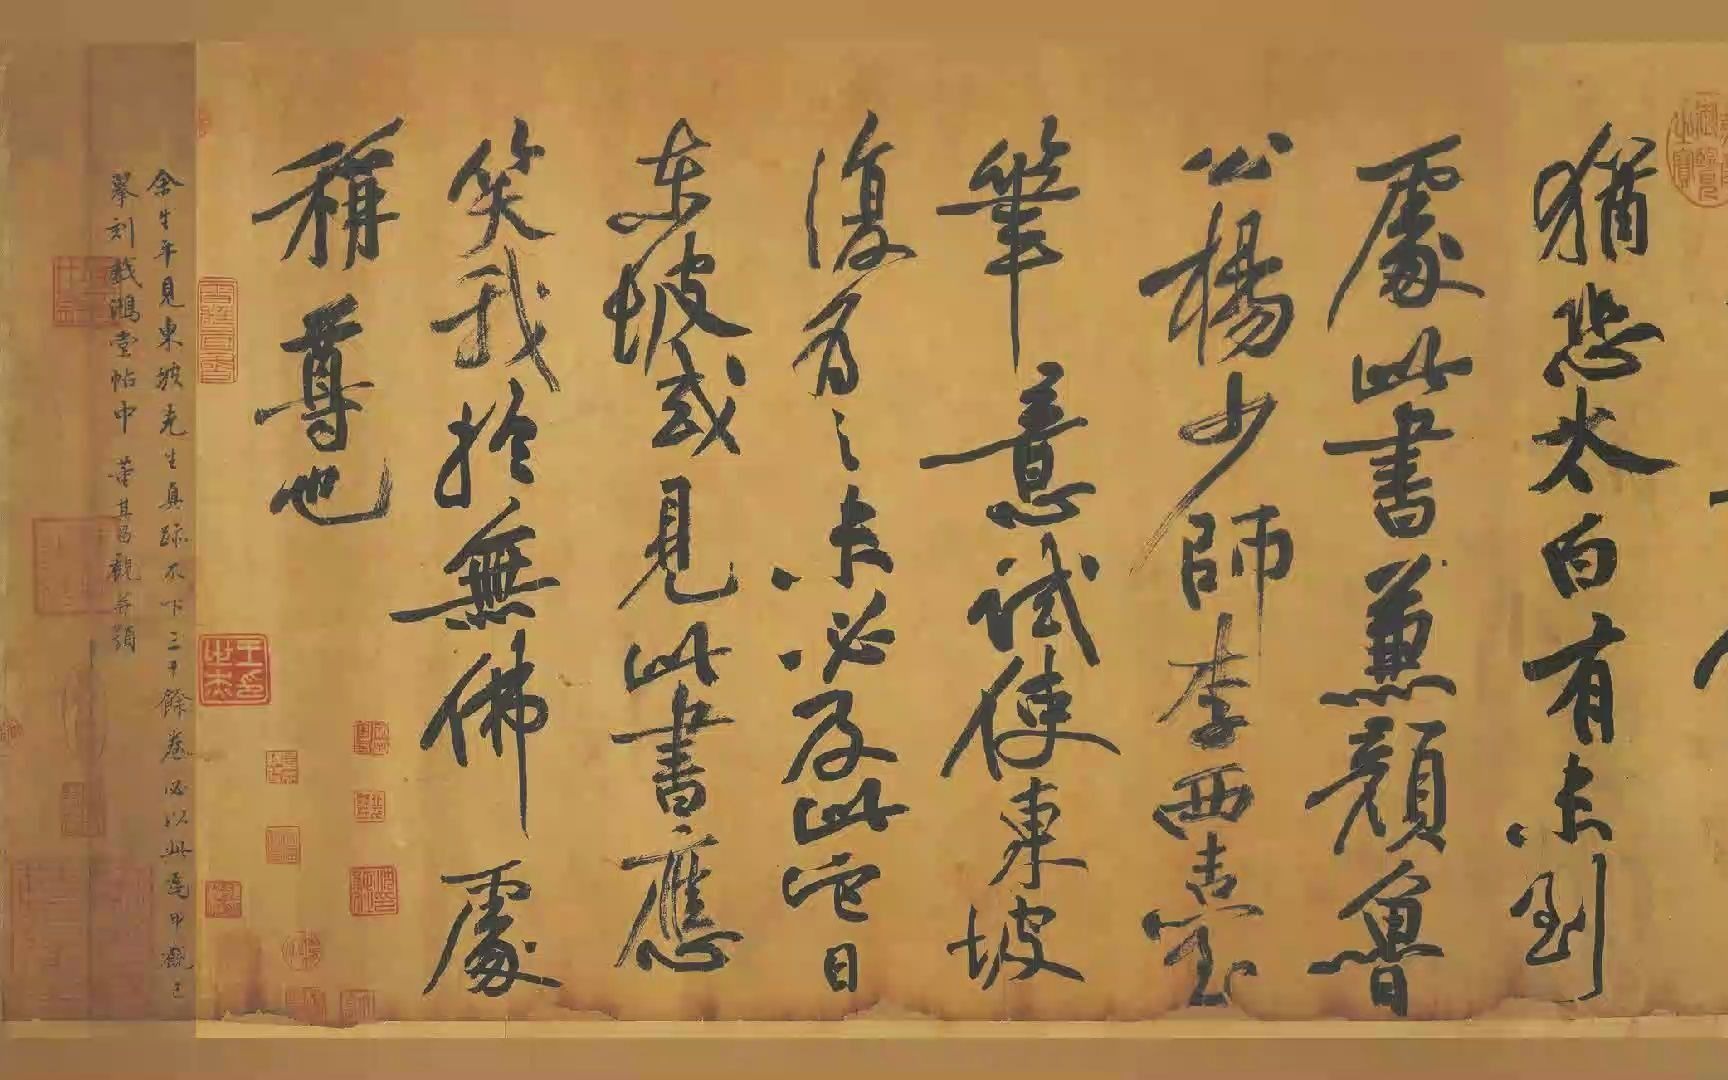 猶恐太白有未到
處此書兼顏魯
公楊少師李西臺
筆意試使東坡
復為之未必及此它日
東坡或見此書應
笑我於無佛處
稱尊也
余生平見東坡先生真跡不下三十餘卷必以此為甲觀已
摹刻戲鴻堂帖中 董其昌觀并題